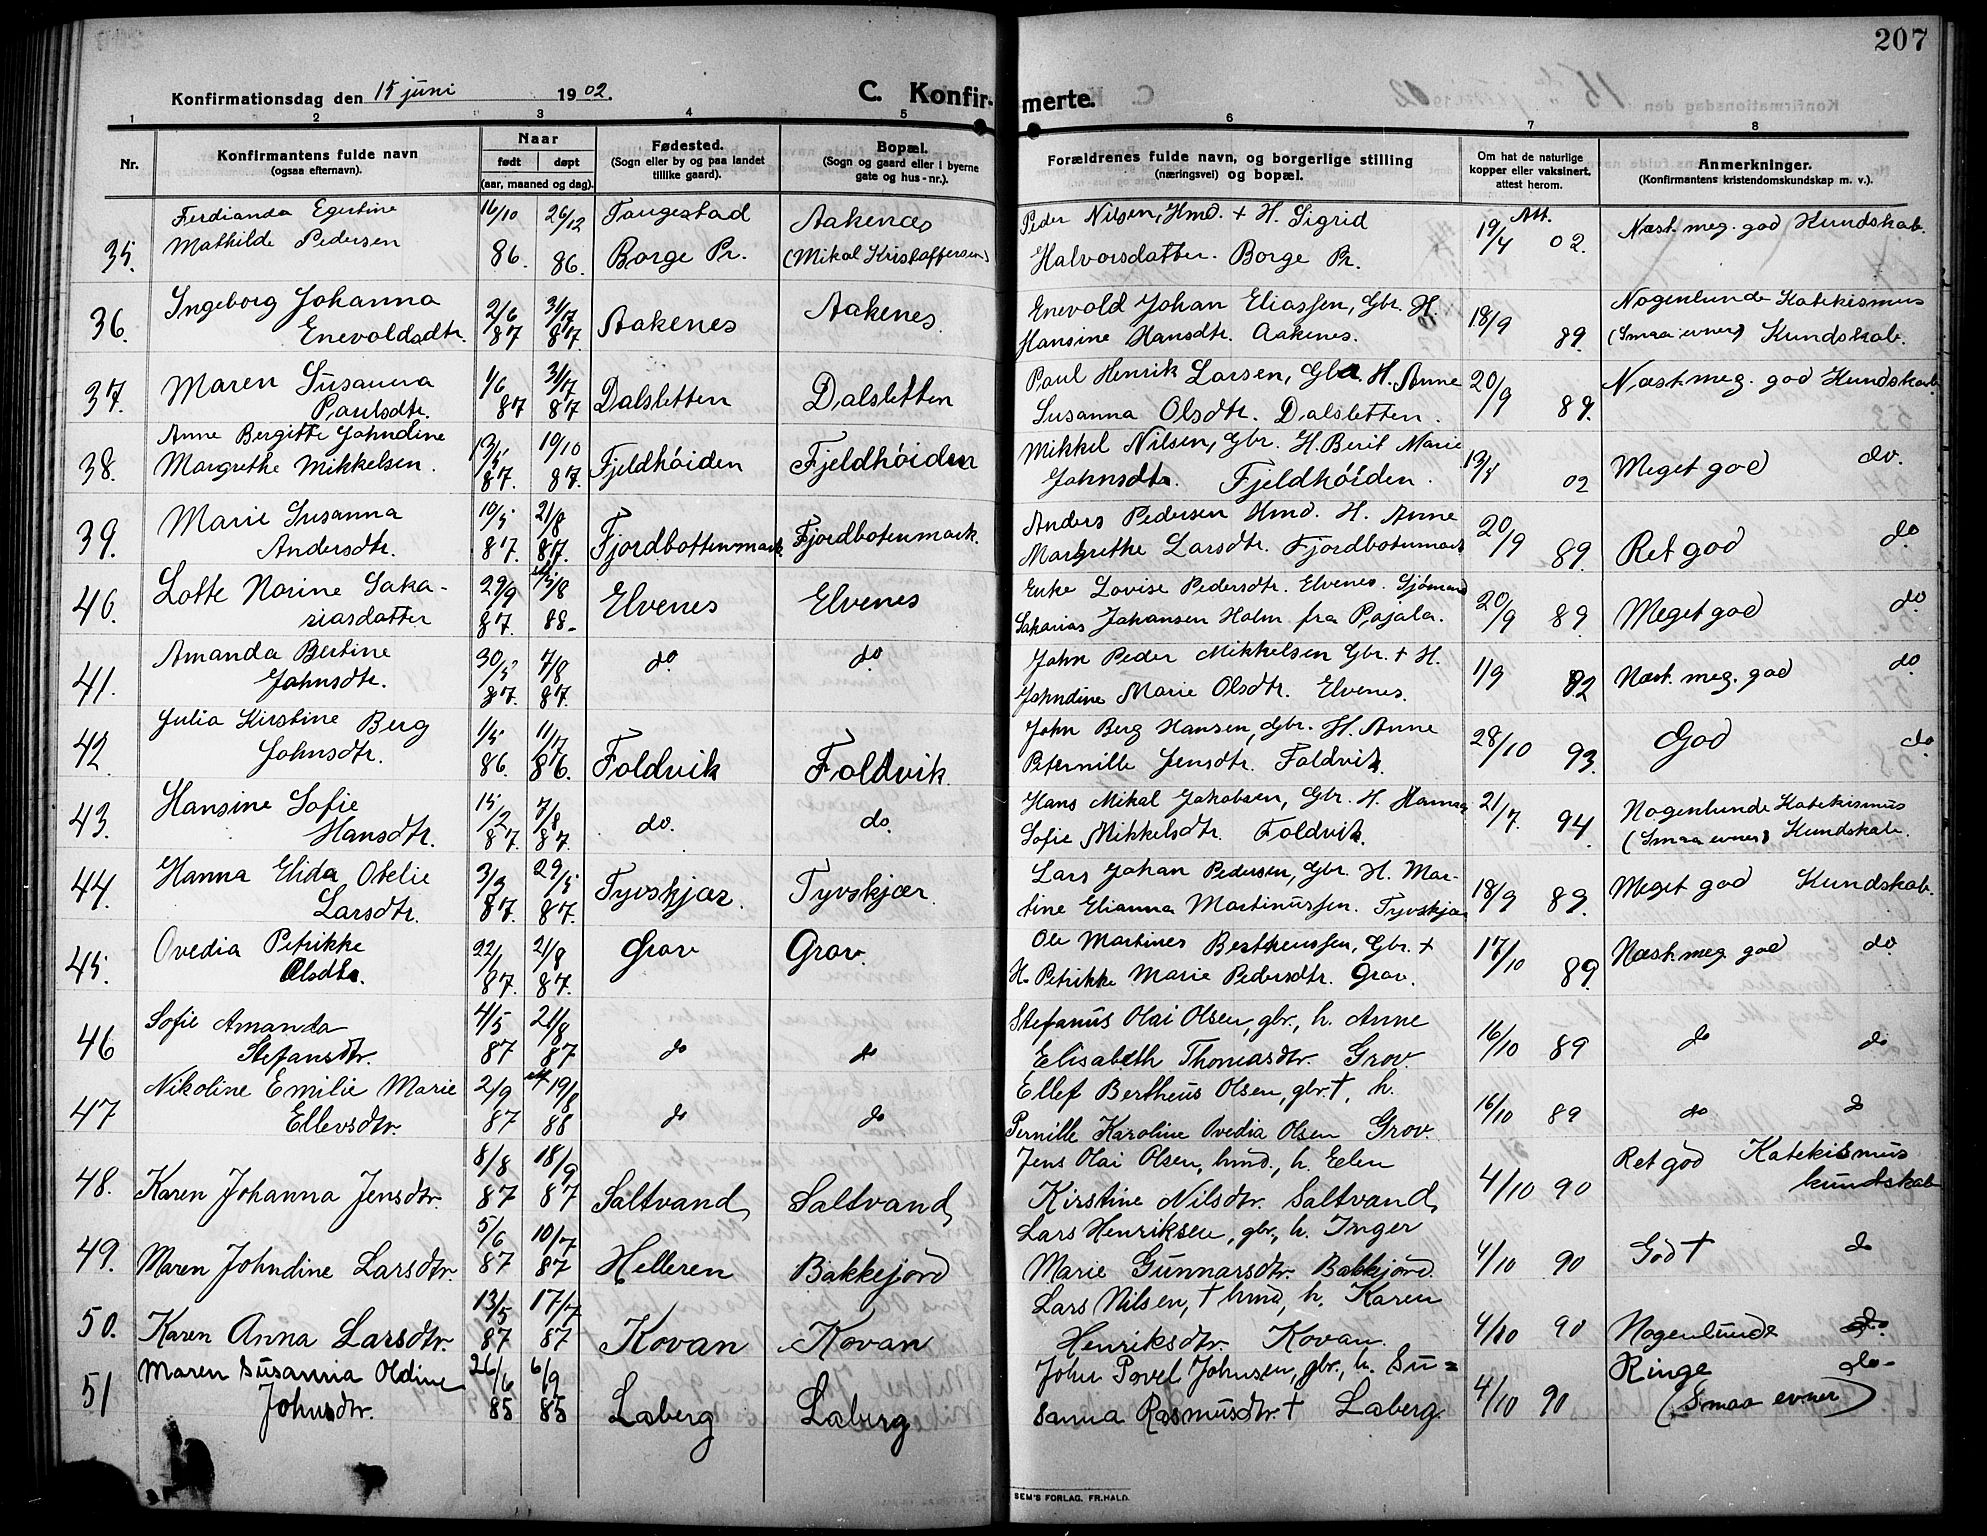 207
Konfirmationsdag den 15 juni 1902. C. Konfirmerte.
1 2 3 4 5 6 7 8
Nr. Konfirmantens fulde navn (ogsaa efternavn). Naar født døpt (aar, maaned og dag). Fødested. (Sogn eller by og paa landet tillike gaard). Bopæl. (Sogn og gaard eller i byerne gate og hus-nr.). Forældrenes fulde navn, og borgerlige stilling (næringsvei) og bopæl. Om hat de naturlige kopper eller vaksinert, attest herom. Anmerkninger. (Konfirmantens kristendomskundskap m. v.).
Ferdianda Egertine 16/10 26/12 Tangestad Aakenes Peder Nilsen, Hmd. + H. Sigrid 19/4 Att. Næst meg. god Kundskab.
35. Mathilde Pedersen 86. 86. Borge Pr. (Mikal Kristoffersen) Halvorsdatter. Borge Pr. 02.
36. Ingeborg Johanna 2/6 31/7 Aakenes Aakenes. Enevold Johan Eliassen, Gbr. H. 18/9 Nogenlunde Katekismus
Enevoldsdtr. 87 87 Hansine Hansdtr. Aakenes. 89. (Smaa evner) Kundskab.
37. Maren Susanna 1/6 31/7 Dalsletten Dalsletten Paul Henrik Larsen, Gbr. H. Anne 20/9 Næst meg. god Kundskab
Paulsdtr. 87 87 Susanna Olsdtr. Dalsletten. 89.
38. Anne Bergitte Johndine 13/5 19/10 Fjeldhöiden Fjeldhöiden Mikkel Nilsen, Gbr. H. Berit Marie 13/4 Meget god do.
Margrethe Mikkelsen. 87. 87. Johnsdtr. Fjeldhöiden. 02
39. Marie Susanna 10/5 21/8 Fjordbottenmark Fjordbotenmark. Anders Pedersen Hmd. H. Anne 20/9 Ret god do.
Andersdtr. 87. 87. Margrethe Larsdtr. Fjordbotenmark 89.
40. Lotte Norine Saka- 29/9 Elvenes Elvenes Enke Lovise Pedersdtr. Elvenes. Sjömand 20/9 Meget god do.
riasdatter 87. 88. Sakarias Johansen Holm fra Pajala. 89.
41. Amanda Bertine 30/5 7/8 do. do John Peder Mikkelsen Gbr. + H. 1/9 Næst. meg. god do
Johnsdtr. 87. 87. Johndine Marie Olsdtr. Elvenes. 82
42. Julia Kirstine Berg 1/5 11/7 Foldvik Foldvik John Berg Hansen, Gbr. H. Anne 28/10 God do
Johnsdtr. 86. 86. Peternille Jensdtr. Foldvik. 93.
43. Hansine Sofie 15/2 7/8 do. do. Hans Mikal Jakobsen, Gbr. H. Hanna 21/7. Nogenlunde Katekismus
Hansdtr. 87. 87. Sofie Mikkelsdtr. Foldvik. 94. (Smaa evner) Kundskab.
44. Hanna Elida Otelie 3/3 29/5 Tyvskjær. Tyvskjær. Lars Johan Pedersen, Gbr. H. Mar- 18/9 Meget god Kundskab.
Larsdtr. 87. 87. tine Elianna Martinussen. Tyvskjær 89.
45. Ovedia Petrikke 22/1 21/8 Grov Grov. Ole Martines Bertheussen, Gbr. + 17/10 Næst meg. god do.
Olsdtr. 87. 87. H. Petrikke Marie Pedersdtr. Grov. 89.
46 Sofie Amanda 4/5 21/8 do do Stefanus Olai Olsen, gbr., h. Anne 16/10 89 do do
Stefansdtr. 87 87 Elisabeth Thomasdtr. Grov.
47 Nikoline Emilie Marie 2/9 19/8 do do Ellef Bertheus Olsen, gbr. †, h. 16/10 89 do do
Ellevsdtr. 87 88 Pernille Karoline Ovedia Olsen Grov.
48. Karen Johanna Jensdtr. 8/8 18/9 Saltvand Saltvand Jens Olai Olsen, hmd., h. Elen 4/10 90 Ret god Katekismus
87 87 Kirstine Nilsdtr. Saltvand kundskab
49. Maren Johndine Larsdtr. 5/6 10/7 Helleren Bakkejord Lars Henriksen, gbr., h. Inger 4/10 90 God † do
87 87 Marie Gunnarsdtr. Bakkjord.
50. Karen Anna Larsdtr. 13/5 17/7 Kovan Kovan Lars Nilsen, † hmd, h. Karen 4/10 90 Nogenlunde do.
87 87 Henriksdtr. Kovan.
51 Maren Susanna Oldine 26/6 6/9 Laberg Laberg John Povel Johnsen, gbr., h. Su= 4/10 90 Ringe do-
Johnsdtr. 85 85 sanna Rasmusdtr. † Laberg. (Smaa evner)
SEM'S FORLAG, FR.HALD.